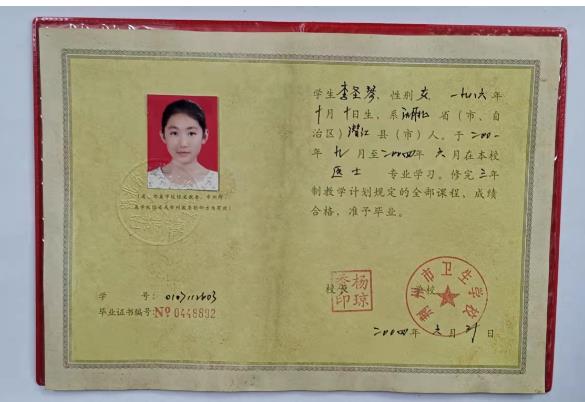 学生李圣琴，性别女，一九八六年
十月十日生，系湖北省（市、自
治区）潜江县（市）人。于二〇〇一
年九月至二〇〇四年六月在本校
医士 专业学习。修完三年
制教学计划规定的全部课程，成绩
合格，准予毕业。
学 号：
毕业证书编号：№ 0448892
校长 杨琼秀印
学校
荆州市卫生学校
二〇〇四年六月 日